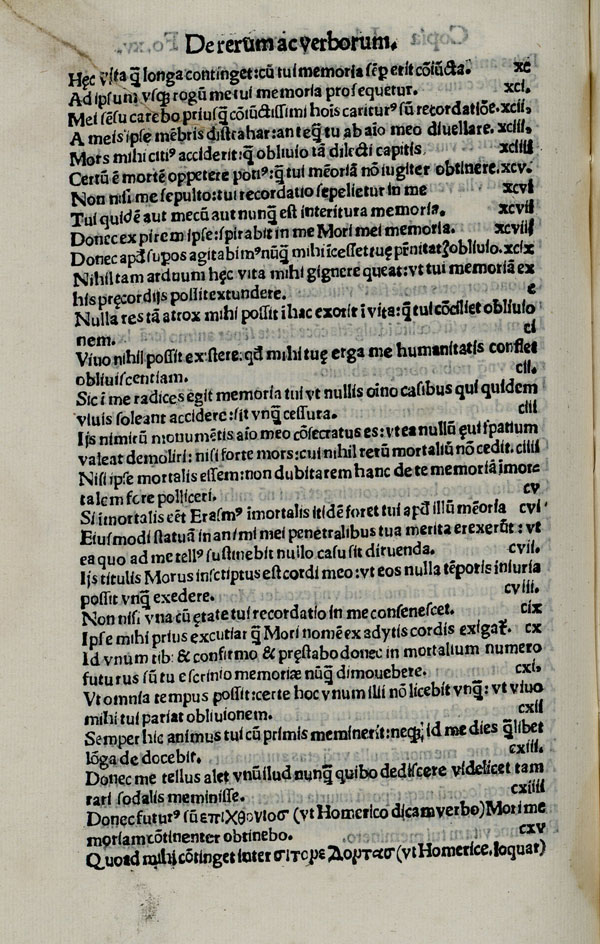 De rerum ac verborum.
Hęc vita q̃ longa continget: cũ tui memoria sẽp erit cõiũcta. xc
Ad ipsum vsq̃ rogũ me tui memoria prosequetur. xci.
Mei sẽsu carebo priusq̃ cõiũctissimi hoĩs caritur⁹ sũ recordatiõe. xcii.
A meis ipse mẽbris distrahar: anteq̃ tu ab aĩo meo diuellare. xciii.
Mors mihi citi⁹ acciderit: q̃ obliuio tã dilecti capitis xciiii
Certũ ẽ mortẽ oppetere poti⁹: q̃ tui mẽoriã nõ iugiter obtinere. xcv.
Non nisi me sepulto: tui recordatio sepelietur in me xcvi
Tui quidẽ aut mecũ aut nunq̃ est interitura memoria. xcvii
Donec expirem ipse: spirabit in me Mori mei memoria. xcviii
Donec apđ supos agitabim⁹ nũq̃ mihi ĩcesset tuę pẽnitatꝭ obliuio. xcix
Nihil tam arduum hęc vita mihi gignere queat: vt tui memoriã ex
his pręcordijs possit extundere. c
Nulla res tã atrox mihi possit ĩ hac exoriri ĩ vita: q̃ tui cõciliet obliuio
nem. ci
Viuo nihil possit existere: qđ mihi tuę erga me humanitatis conflet
obliuiscentiam. cii.
Sic ĩ me radices egit memoria tui vt nullis oĩno casibus qui quidem
viuis soleant accidere: sit vnq̃ cessura. ciii
Ijs nimirũ monumẽtis aĩo meo cõsecratus es: vt ea nullũ ęui spatium
valeat demoliri: nisi forte mors: cui nihil rerũ mortaliũ nõ cedit. ciiii
Nisi ipse mortalis essem: non dubitarem hanc de te memoriã ĩmor-
talem fore polliceri. cv
Si ĩmortalis eẽt Erasm⁹ ĩmortalis itidẽ foret tui apđ illũ mẽoria cvi
Eiusmodi statuã in animi mei penetralibus tua merita erexerũt: vt
ea quo ad me tell⁹ sustinebit nullo casu sit diruenda. cvii.
Ijs titulis Morus insctiptus est cordi meo: vt eos nulla tẽporis iniuria
possit vnq̃ exedere. cviii.
Non nisi vna cũ ętate tui recordatio in me consenescet. cix
Ipse mihi prius excutiar q̃ Mori nomẽ ex adytis cordis exigat᷑. cx
Id vnum tibi & confirmo & pręstabo donec in mortalium numero
futurus sũ tu e scrinio memoriæ nũq̃ dimouebere. cxi.
Vt omnia tempus possit: certe hoc vnum illi nõ licebit vnq̃: vt viuo
mihi tui pariat obliuionem. cxii
Semper hic animus tui cũ primis meminerit: neq; id me dies q̃libet
lõga dedocebit. cxiii.
Donec me tellus alet vnũ ilud nunq̃ quibo dediscere videlicet tam
rari sodalis meminisse. cxiiii
Donec futur⁹ sũ επιχθονιοσ (vt Homerico dicam verbo) Mori me
moriam cõtinenter obtinebo. cxv
Quoad mihi cõtinget inter σιτον ε Δορτασ (vt Homerice loquar)